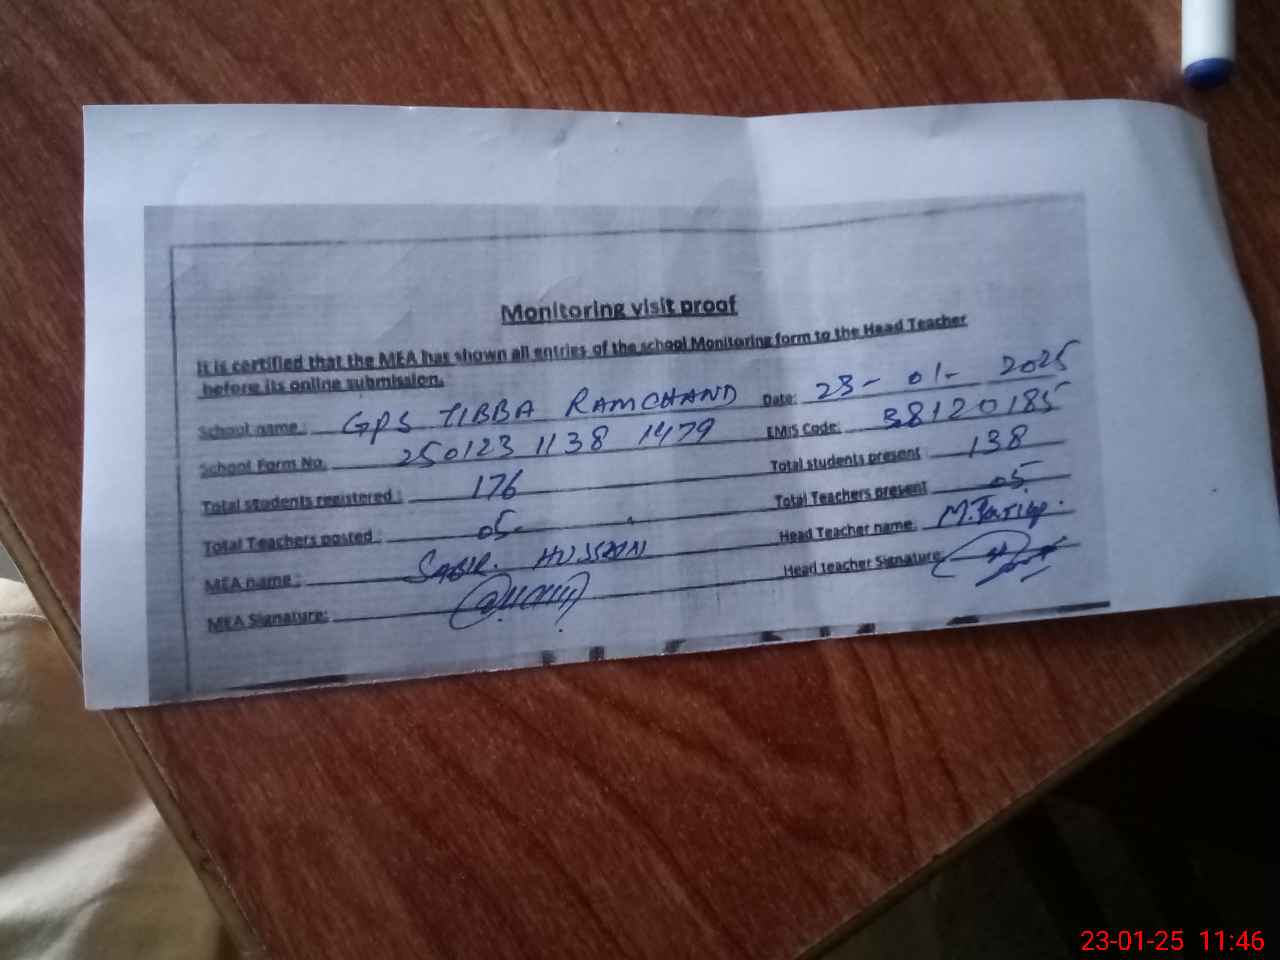 Monitoring visit proof
It is certified that the MEA has shown all entries of the school Monitoring form to the Head Teacher
before its online submission.
School name : GPS TIBBA RAMCHAND Date: 23-01-2025
School Form No. 250123 1138 1479 EMIS Code: 38120185
Total students registered : 176 Total students present 138
Total Teachers posted : 05 Total Teachers present 05
MEA name : SABIR. HUSSAIN Head Teacher name: M. Tariq.
MEA Signature: Head teacher Signature:
23-01-25 11:46